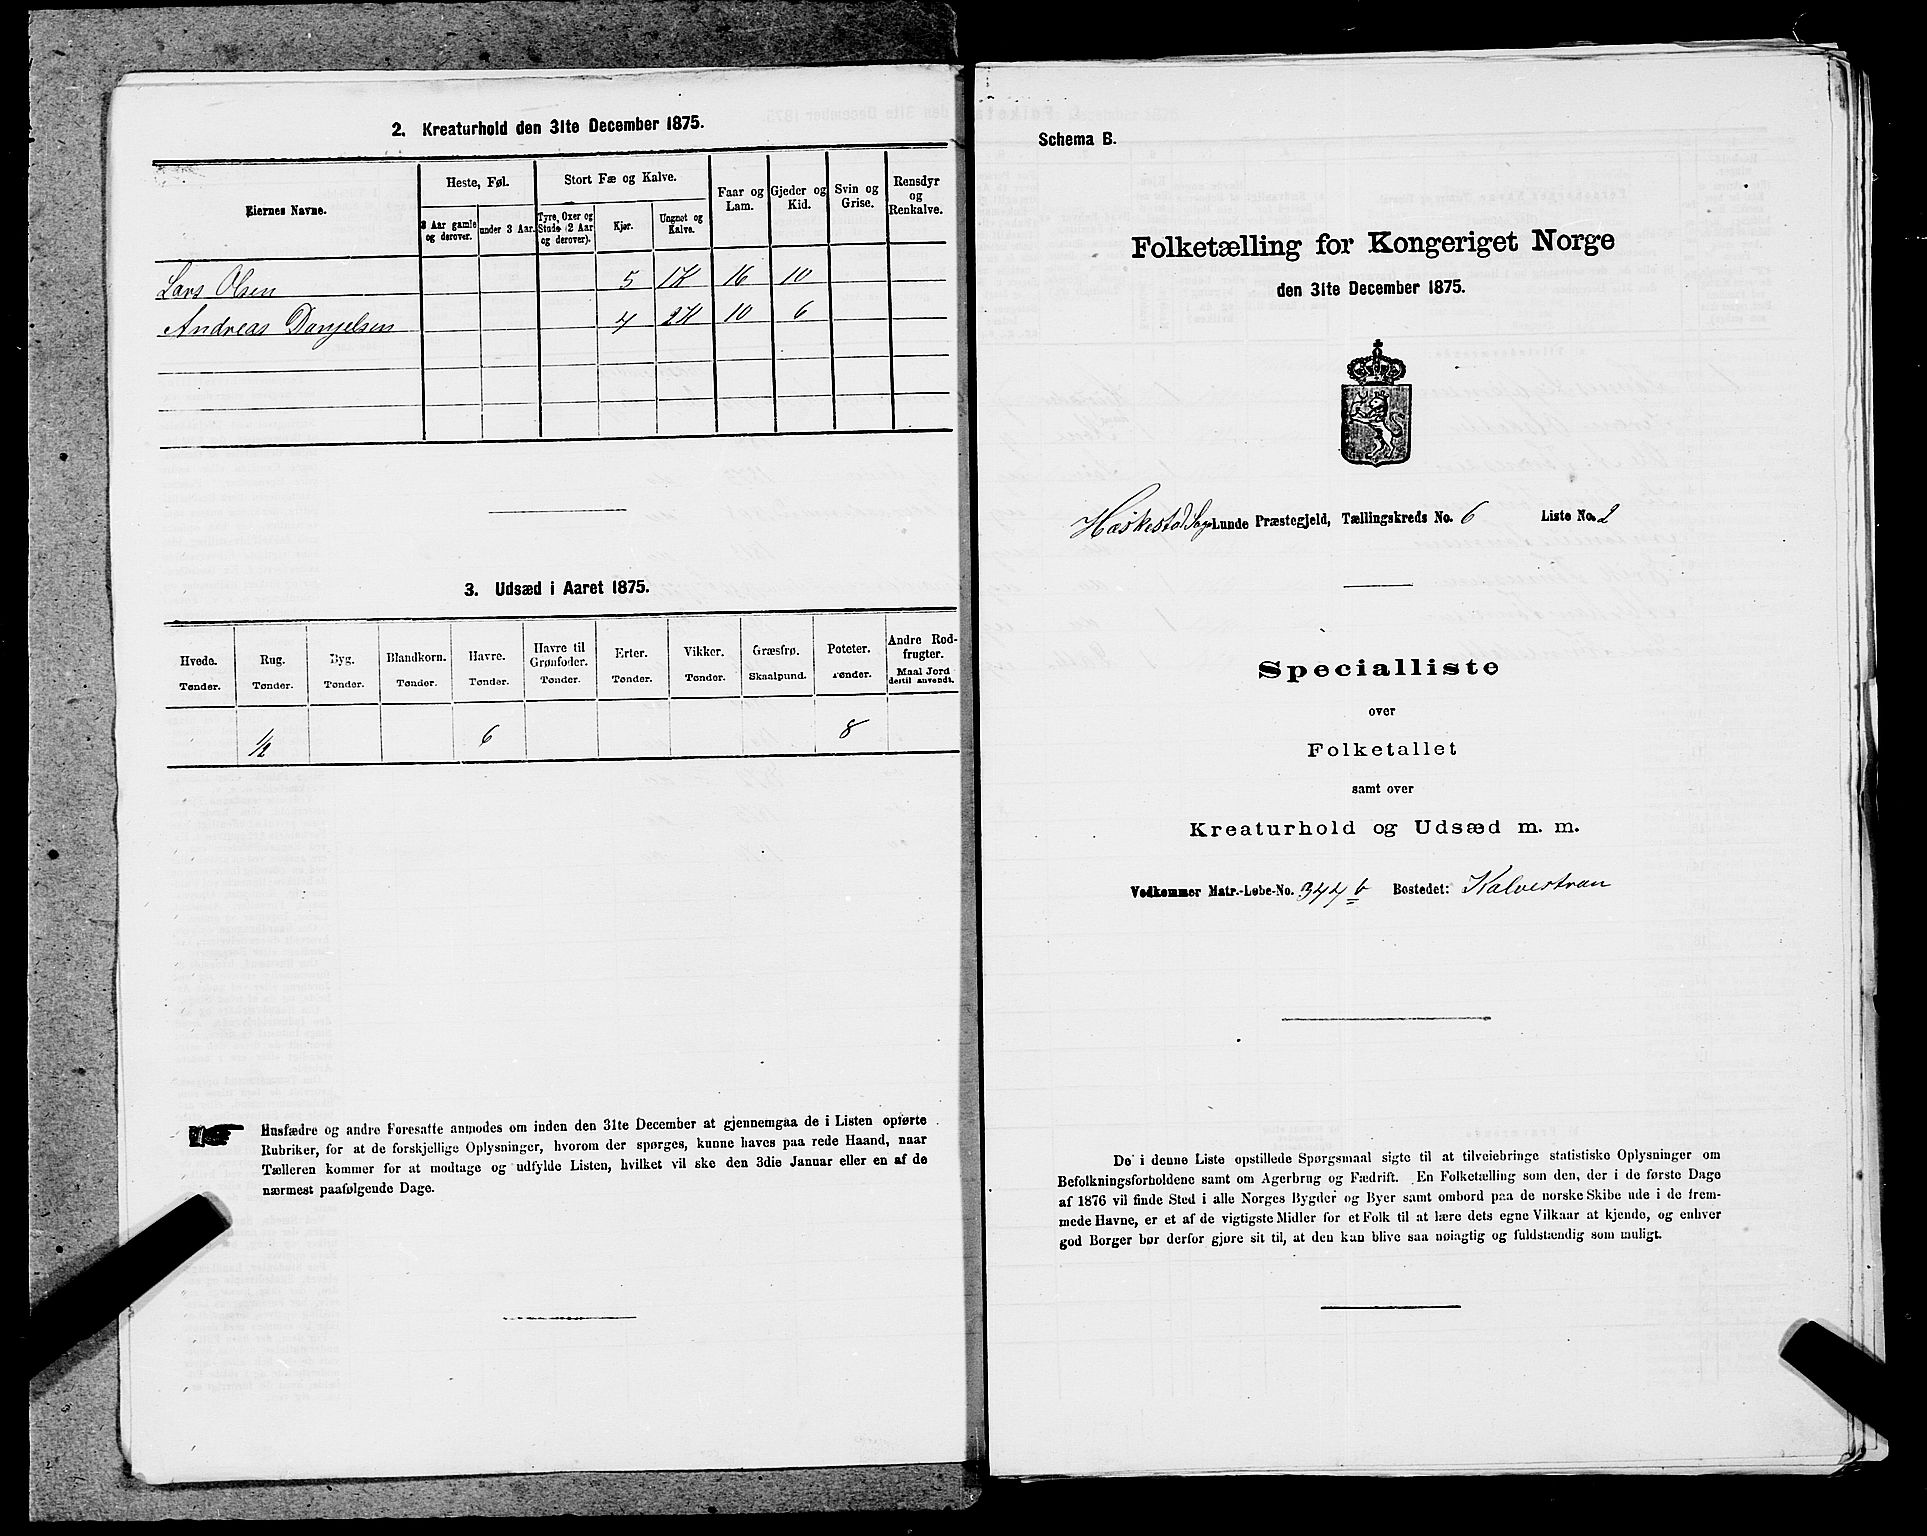 2. Kreaturhold den 31te December 1875.
Eiernes Navne.
Heste, Føl.
Stort Fæ og Kalve.
Faar og Lam.
Gjeder og Kid.
Svin og Grise.
Rensdyr og Renkalve.
3 Aar gamle og derover.
under 3 Aar.
Tyre, Oxer og Stude (2 Aar og derover).
Kjør.
Ungnøt og Kalve.
Lars Olsen 5 1K 16 10
Andreas Danjelsen 4 2K 10 6
3. Udsæd i Aaret 1875.
Hvede. Rug. Byg. Blandkorn. Havre. Havre til Grønfoder. Erter. Vikker. Græsfrø. Poteter. Andre Rodfrugter.
Tønder. Tønder. Tønder. Tønder. Tønder. Tønder. Tønder. Tønder. Skaalpund. Tønder. Maal Jord dertil anvendt.
1/2 6 8
Husfædre og andre Foresatte anmodes om inden den 31te December at gjennemgaa de i Listen opførte
Rubriker, for at de forskjellige Oplysninger, hvorom der spørges, kunne haves paa rede Haand, naar
Tælleren kommer for at modtage og udfylde Listen, hvilket vil ske den 3die Januar eller en af de
nærmest paafølgende Dage.
Schema B.
Folketælling for Kongeriget Norge
den 31te December 1875.
Hæskestad Sogn Lunde Præstegjeld, Tællingskreds No. 6 Liste No. 2
Specialliste
over
Folketallet
samt over
Kreaturhold og Udsæd m. m.
Vedkommer Matr.-Løbe-No. 344 b Bostedet: Kalvestrøn
De i denne Liste opstillede Spørgsmaal sigte til at tilveiebringe statistiske Oplysninger om
Befolkningsforholdene samt om Agerbrug og Fædrift. En Folketælling som den, der i de første Dage
af 1876 vil finde Sted i alle Norges Bygder og Byer samt ombord paa de norske Skibe ude i de frem-
mede Havne, er et af de vigtigste Midler for et Folk til at lære dets egne Vilkaar at kjende, og enhver
god Borger bør derfor gjøre sit til, at den kan blive saa nøiagtig og fuldstændig som muligt.